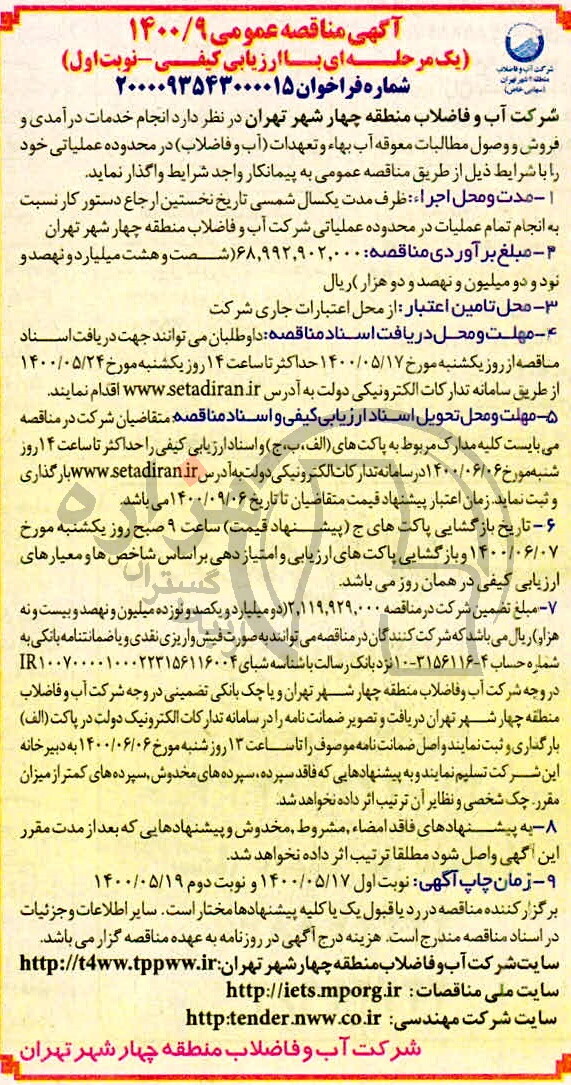 آگهی مناقصه عمومی ۱۴۰۰/۹
(یک مرحله ای با ارزیابی کیفی - نوبت اول)
شماره فراخوان ۲۰۰۰۰۹۳۵۴۳۰۰۰۰۱۵
شرکت آب و فاضلاب
منطقه ۴ شهر تهران
(سهامی خاص)
شرکت آب و فاضلاب منطقه چهار شهر تهران در نظر دارد انجام خدمات درآمدی و
فروش و وصول مطالبات معوقه آب بهاء و تعهدات (آب و فاضلاب) در محدوده عملیاتی خود
را با شرایط ذیل از طریق مناقصه عمومی به پیمانکار واجد شرایط واگذار نماید.
۱-مدت و محل اجراء: ظرف مدت یکسال شمسی تاریخ نخستین ارجاع دستور کار نسبت
به انجام تمام عملیات در محدوده عملیاتی شرکت آب و فاضلاب منطقه چهار شهر تهران
۲-مبلغ برآوردی مناقصه: ۶۸,۹۹۲,۹۰۲,۰۰۰(شصت و هشت میلیارد و نهصد و
نود و دو میلیون و نهصد و دو هزار )ریال
۳-محل تامین اعتبار: از محل اعتبارات جاری شرکت
۴-مهلت و محل دریافت اسناد مناقصه: داوطلبان می توانند جهت دریافت اسناد
مناقصه از روز یکشنبه مورخ ۱۴۰۰/۰۵/۱۷ حداکثر تا ساعت ۱۴ روز یکشنبه مورخ ۱۴۰۰/۰۵/۲۴
از طریق سامانه تدارکات الکترونیکی دولت به آدرس www.setadiran.ir اقدام نمایند.
۵-مهلت و محل تحویل اسناد ارزیابی کیفی و اسناد مناقصه: متقاضیان شرکت در مناقصه
می بایست کلیه مدارک مربوط به پاکت های (الف، ب، ج) و اسناد ارزیابی کیفی را حداکثر تا ساعت ۱۴ روز
شنبه مورخ ۱۴۰۰/۰۶/۰۶ در سامانه تدارکات الکترونیکی دولت به آدرس www.setadiran.ir بارگذاری
و ثبت نماید. زمان اعتبار پیشنهاد قیمت متقاضیان تا تاریخ ۱۴۰۰/۰۹/۰۶ می باشد.
۶- تاریخ بازگشایی پاکت های ج (پیشنهاد قیمت) ساعت ۹ صبح روز یکشنبه مورخ
۱۴۰۰/۰۶/۰۷ و بازگشایی پاکت های ارزیابی و امتیاز دهی براساس شاخص ها و معیارهای
ارزیابی کیفی در همان روز می باشد.
۷- مبلغ تضمین شرکت در مناقصه ۲,۱۱۹,۹۲۹,۰۰۰(دو میلیارد و یکصد و نوزده میلیون و نهصد و بیست و نه
هزار) ریال می باشد که شرکت کنندگان در مناقصه می توانند به صورت فیش واریزی نقدی و یا ضمانتنامه بانکی به
شماره حساب ۴-۳۱۵۶۱۱۶-۱۰ نزد بانک رسالت با شناسه شبای IR۱۰۰۷۰۰۰۰۱۰۰۰۲۲۳۱۵۶۱۱۶۰۰۴
در وجه شرکت آب و فاضلاب منطقه چهار شهر تهران و یا چک بانکی تضمینی در وجه شرکت آب و فاضلاب
منطقه چهار شهر تهران دریافت و تصویر ضمانت نامه را در سامانه تدارکات الکترونیک دولت در پاکت (الف)
بارگذاری و ثبت نمایند و اصل ضمانت نامه موصوف را تا ساعت ۱۳ روز شنبه مورخ ۱۴۰۰/۰۶/۰۶ به دبیرخانه
این شرکت تسلیم نمایند و به پیشنهادهایی که فاقد سپرده، سپرده های مخدوش, سپرده های کمتر از میزان
مقرر, چک شخصی و نظایر آن ترتیب اثر داده نخواهد شد.
۸-به پیشنهادهای فاقد امضاء, مشروط, مخدوش و پیشنهادهایی که بعد از مدت مقرر
این آگهی واصل شود مطلقا ترتیب اثر داده نخواهد شد.
۹-زمان چاپ آگهی: نوبت اول ۱۴۰۰/۰۵/۱۷ و نوبت دوم ۱۴۰۰/۰۵/۱۹
برگزار کننده مناقصه در رد یا قبول یک یا کلیه پیشنهادها مختار است. سایر اطلاعات و جزئیات
در اسناد مناقصه مندرج است. هزینه درج آگهی در روزنامه به عهده مناقصه گزار می باشد.
سایت شرکت آب و فاضلاب منطقه چهار شهر تهران: http://t4ww.tppww.ir
سایت ملی مناقصات: http://iets.mporg.ir
سایت شرکت مهندسی: http:tender.nww.co.ir
شرکت آب و فاضلاب منطقه چهار شهر تهران